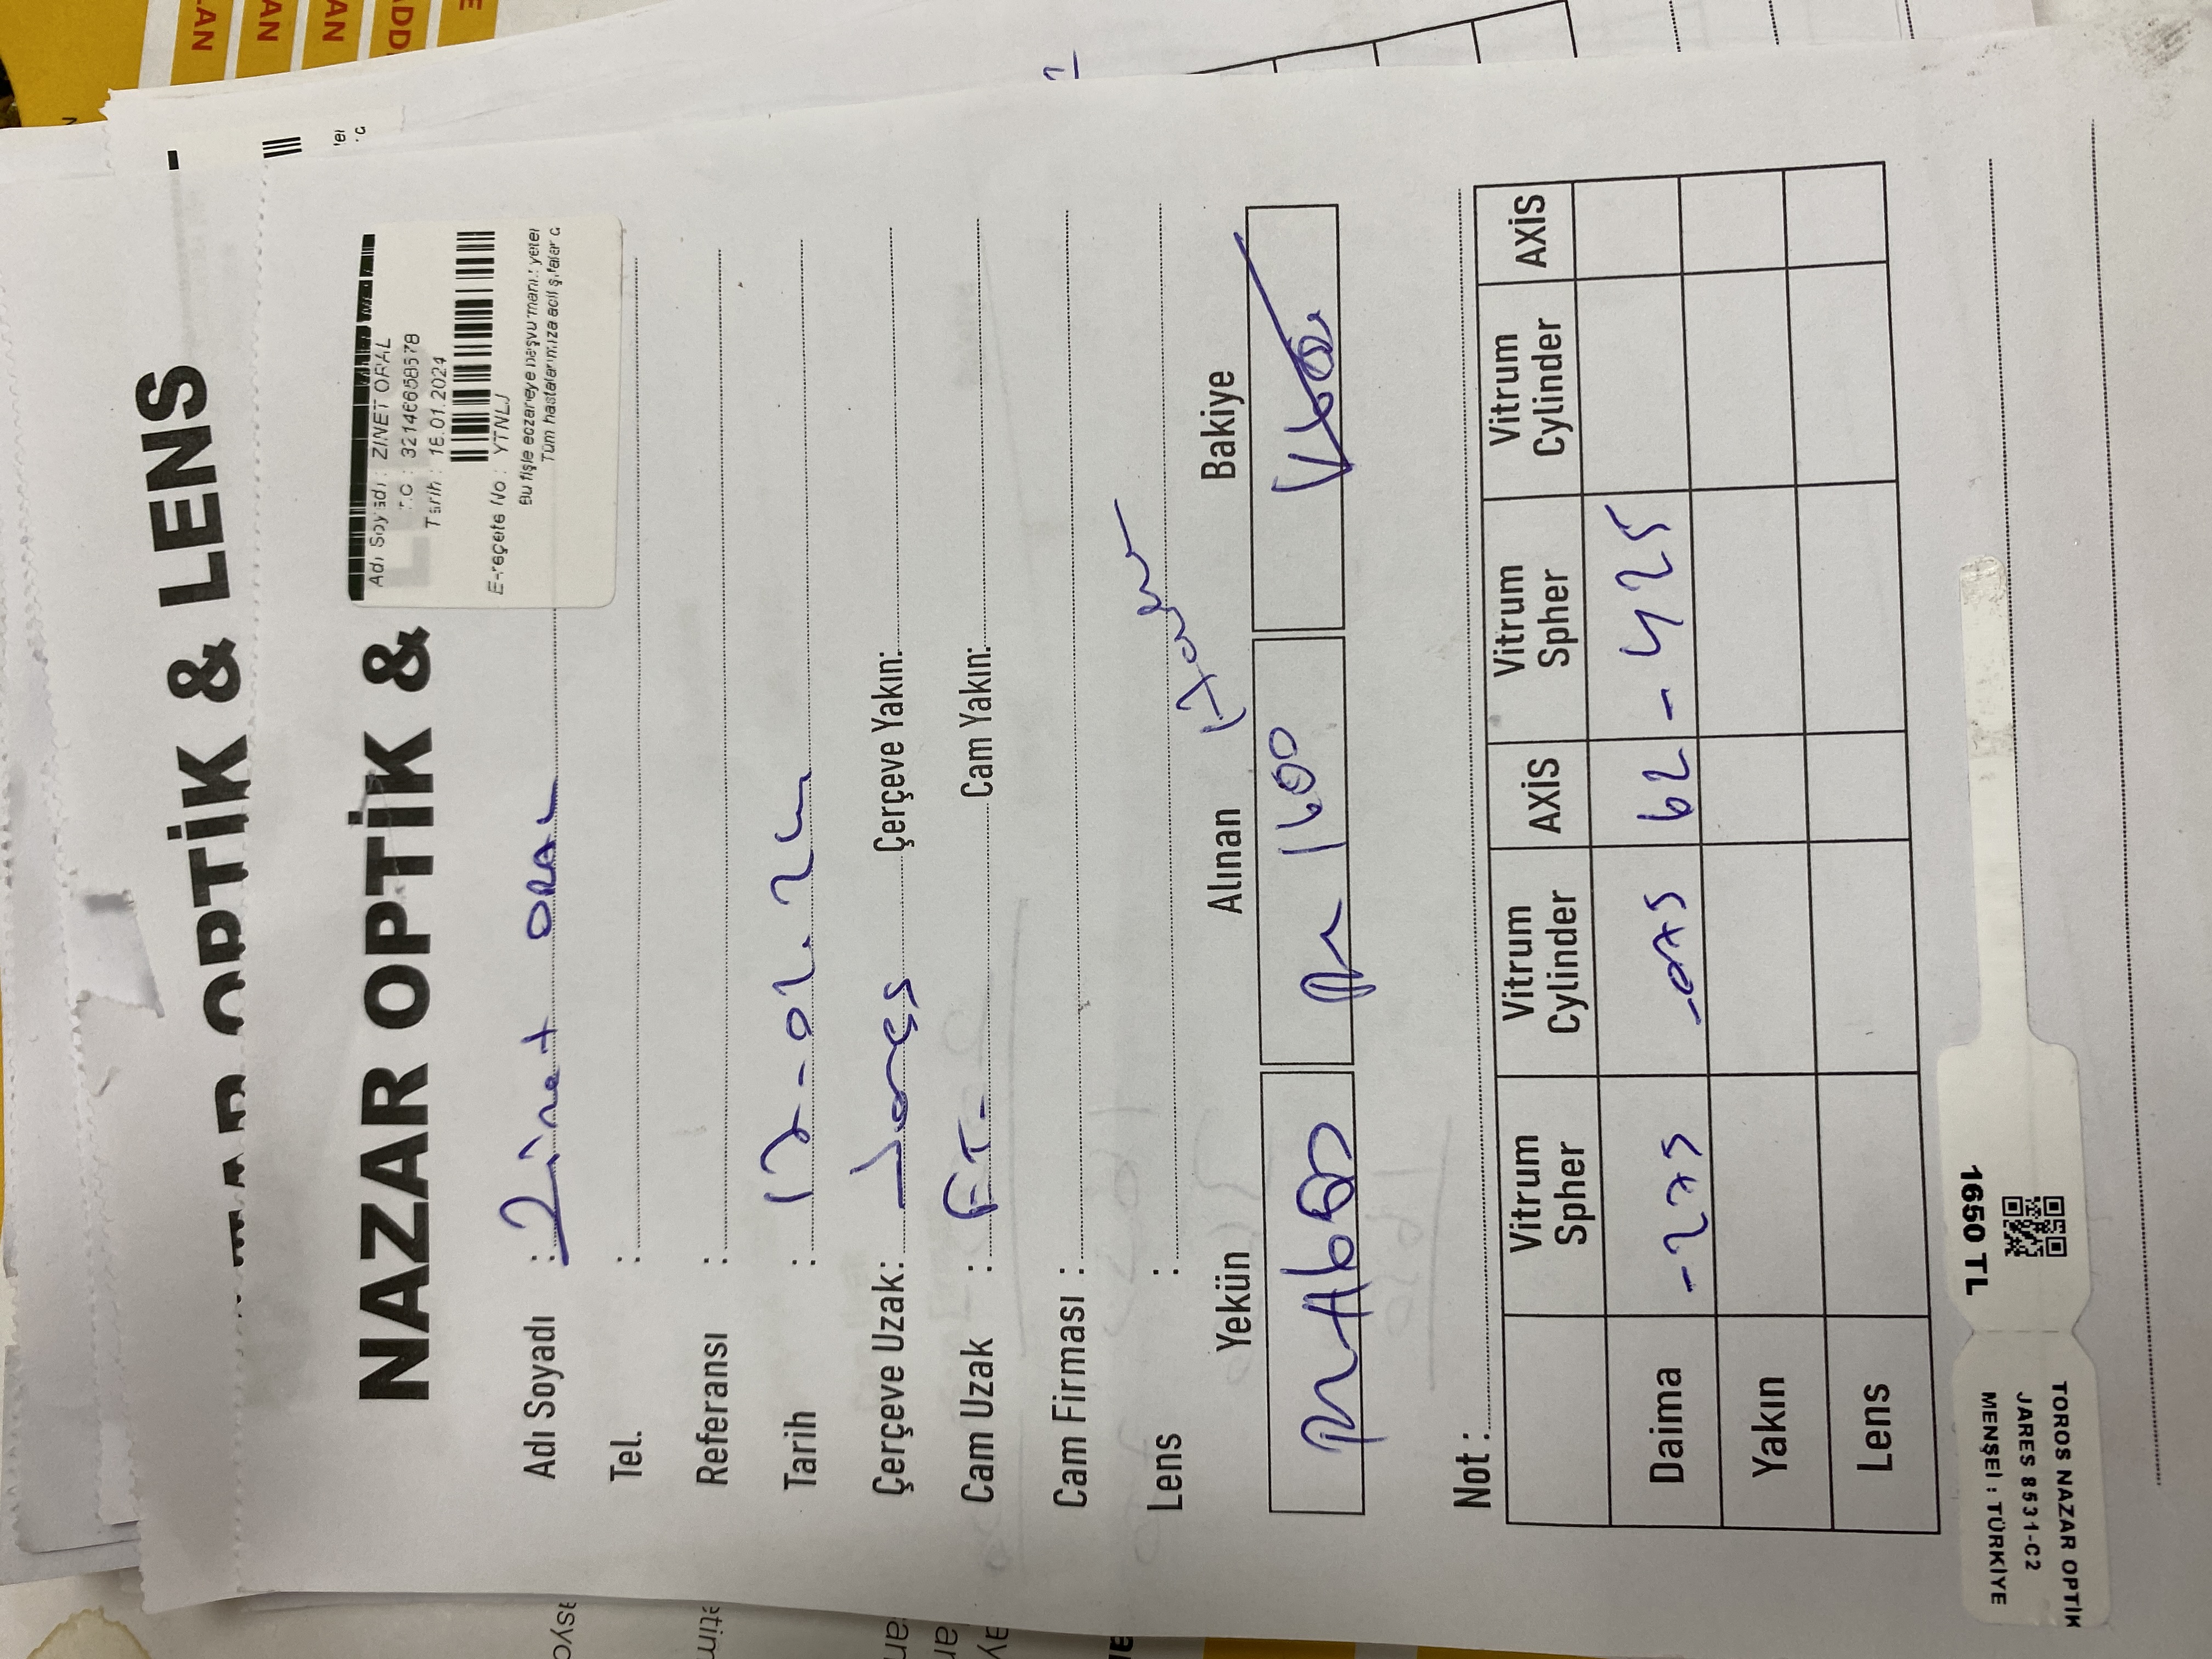 OPTİK & LENS
NAZAR OPTİK &
Adı Soyadı : ZİNET ORAL
T.C : 32146658578
Tarih : 16.01.2024
E-reçete No : YTNLJ
Bu fişle eczaneye başvurmanız yeter
Tüm hastalarımıza acil şifalar d
Adı Soyadı : Zinet ORAL
Tel. :
Referansı :
Tarih : 17-01.24
Çerçeve Uzak: Jares Çerçeve Yakın:
Cam Uzak : Cam Yakın:
Cam Firması :
Lens :
Yekün Alınan Bakiye
1600 1600
Not :
Vitrum Spher Vitrum Cylinder AXİS Vitrum Spher Vitrum Cylinder AXİS
Daima -275 -075 62 -425
Yakın
Lens
1650 TL
TOROS NAZAR OPTİK
JARES 8531-C2
MENŞEİ : TÜRKİYE